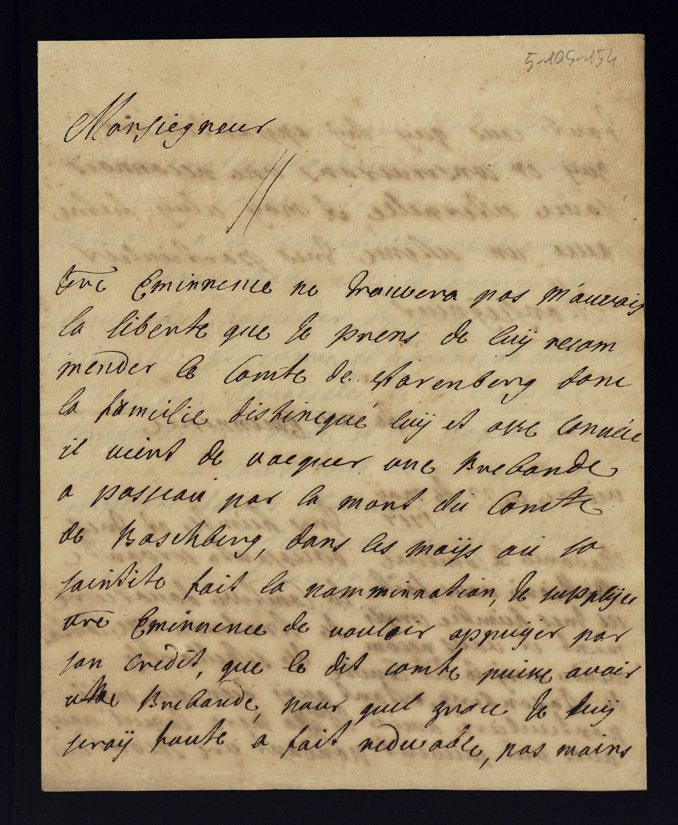 5-105-154
Monsiegneur
Vre Eminnence ne trouvera pas mauvais
la liberte que Je prens de luÿ recom
mender le Comte de Starenberg dont
la familie distinequé luÿ et
il vient de vacquer une Brebande
a passau par la mort du Comte
de Boschberg, dans les moÿs ou sa
saintite fait la nomminnation, Je supplÿe
vre Eminnence de vouloir appuÿer par
son credit, que le dit comte puise avoir
Brebande, pour quel grace Je luÿ
seraÿ toute a fait redevable, pas moins